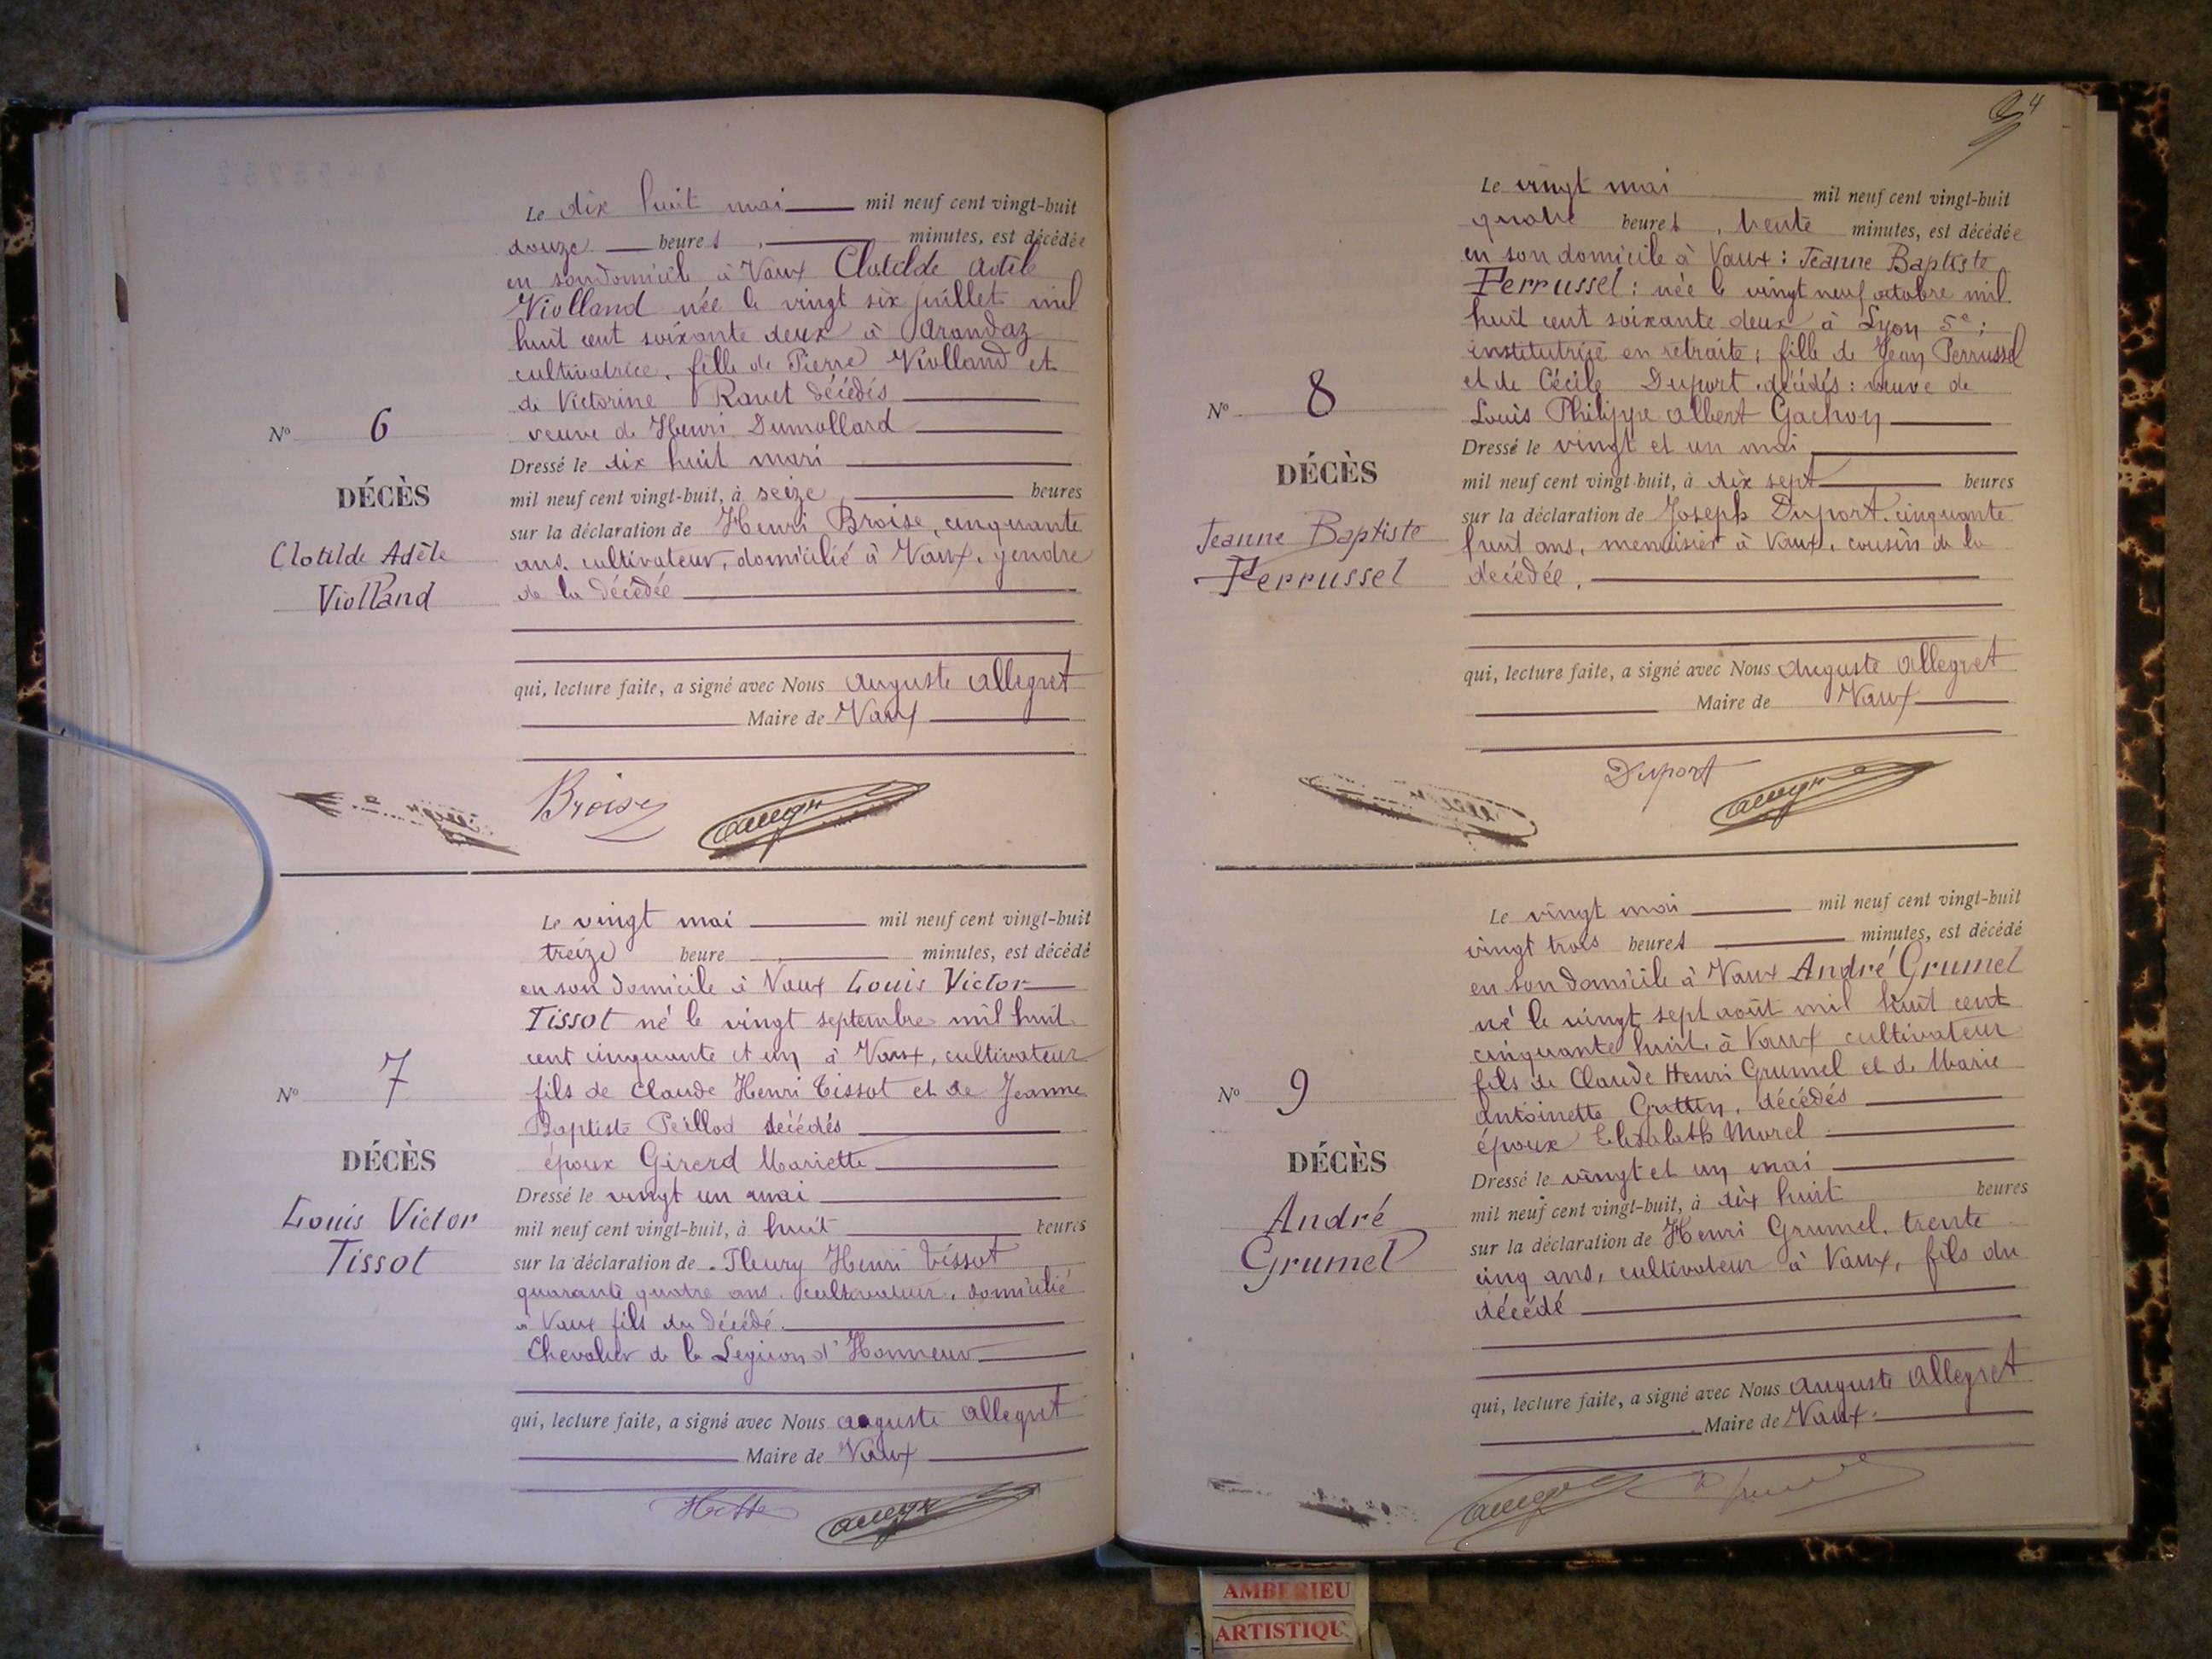 Le dix huit mai mil neuf cent vingt-huit
douze heures, minutes, est décédée
en son domicile à Vaux Clotilde Adèle
Violland née le vingt six juillet mil
huit cent soixante deux à Arandaz
cultivatrice, fille de Pierre Violland et
de Victorine Ravet décédés
veuve de Henri Dumollard
Dressé le dix huit mari
mil neuf cent vingt-huit, à seize, heures
sur la déclaration de Henri Broise, cinquante
ans, cultivateur, domicilié à Vaux, gendre
de la décédée
qui, lecture faite, a signé avec Nous Auguste Allegret
Maire de Vaux
Nº 6
DÉCÈS
Clotilde Adèle
Violland
Broise
Le vingt mai mil neuf cent vingt-huit
treize heure, minutes, est décédé
en son domicile à Vaux Louis Victor
Tissot né le vingt septembre mil huit
cent cinquante et un à Vaux, cultivateur
fils de Claude Henri Tissot et de Jeanne
Baptiste Peillod décédés
époux Girerd Mariette
Dressé le vingt un mai
mil neuf cent vingt-huit, à huit heures
sur la déclaration de Fleury Henri Tissot
quarante quatre ans, cultivateur, domicilié
à Vaux fils du décédé.
Chevalier de la Legion d'Honneur
qui, lecture faite, a signé avec Nous auguste Allegret
Maire de Vaux
Nº 7
DÉCÈS
Louis Victor
Tissot
4
Le vingt mai mil neuf cent vingt-huit
quatre heures, trente minutes, est décédée
en son domicile à Vaux: Jeanne Baptiste
Perrussel: née le vingt neuf octobre mil
huit cent soixante deux à Lyon 5e;
institutrice en retraite; fille de Jean Perrussel
et de Cécile Duport, décédés: veuve de
Louis Philippe Albert Gachon
Dressé le vingt et un mai
mil neuf cent vingt-huit, à dix sept heures
sur la déclaration de Joseph Duport, cinquante
huit ans, menuisier à Vaux, cousin de la
décédée,
qui, lecture faite, a signé avec Nous Auguste Allegret
Maire de Vaux
Nº 8
DÉCÈS
Jeanne Baptiste
Perrussel
Duport
Le vingt mai mil neuf cent vingt-huit
vingt trois heures minutes, est décédé
en son domicile à Vaux André Grumel
né le vingt sept août mil huit cent
cinquante huit, à Vaux cultivateur
fils de Claude Henri Grumel et de Marie
Antoinette, décédés
époux Elisabeth Morel
Dressé le vingt et un mai
mil neuf cent vingt-huit, à dix huit heures
sur la déclaration de Henri Grumel, trente
cinq ans, cultivateur à Vaux, fils du
décédé
qui, lecture faite, a signé avec Nous Auguste Allegret
Maire de Vaux
Nº 9
DÉCÈS
André
Grumel
AMBERIEU
ARTISTIQU